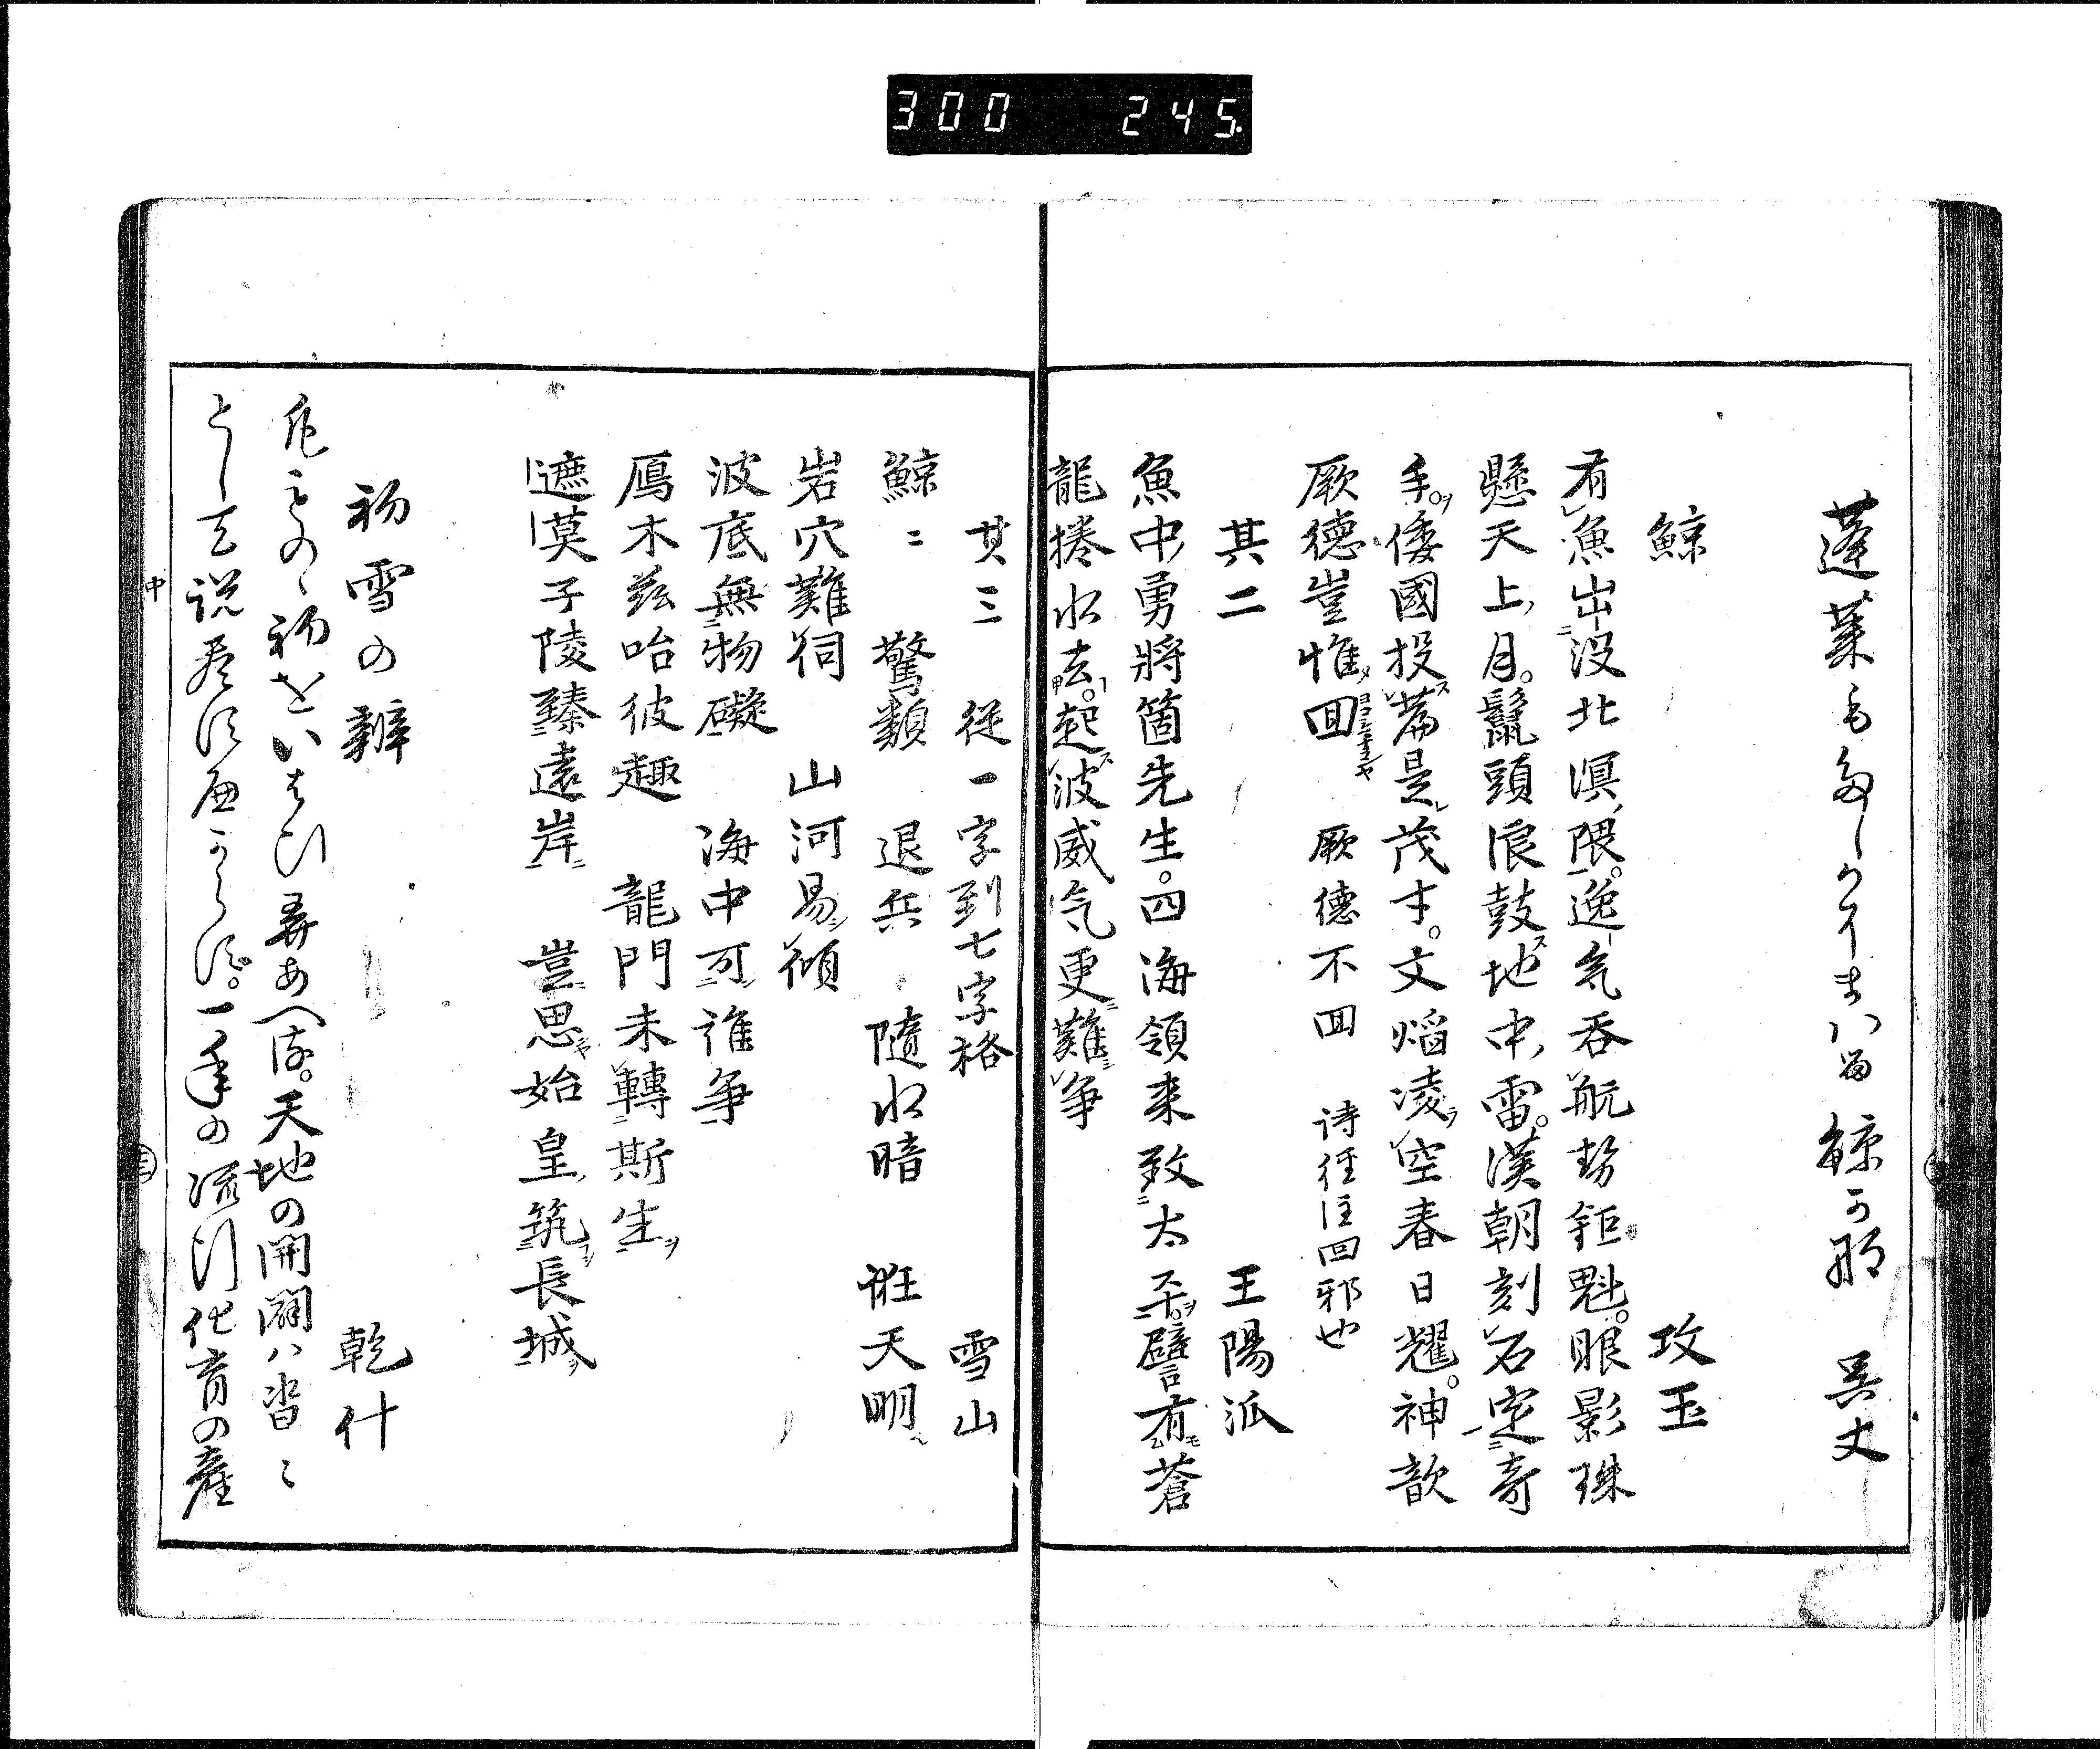 300 245
蓬莱も
鯨 呉丈
鯨 攻玉
有魚出没北溟隈。逸気呑航勢鉅魁。眼影珠
懸天上月。鬣頭浪鼓地中雷。漢朝刻石定奇
手。倭國投䉒是茂才。文焔凌空春日耀。神歆
厥徳豈惟回 厥徳不回 詩經注回邪也
其二 王陽派
魚中勇將箇先生。四海領来致太平。譬有蒼
龍捲水去。起波威気更難争
其三 従一字到七字格 雪山
鯨ミ 驚類 退兵 随水暗 誑天明
岩穴難伺 山河易傾
波底無物礙 海中可誰争
鳫木玆咍彼趣 龍門未轉斯生
遮莫子陵臻遠岸 豈思始皇筑長城
初雪の辯 乾什
凡ものゝ初をいはひ弄あへる。天地の開闢ハ沓ミ
として説 一年の流行化育の産
中